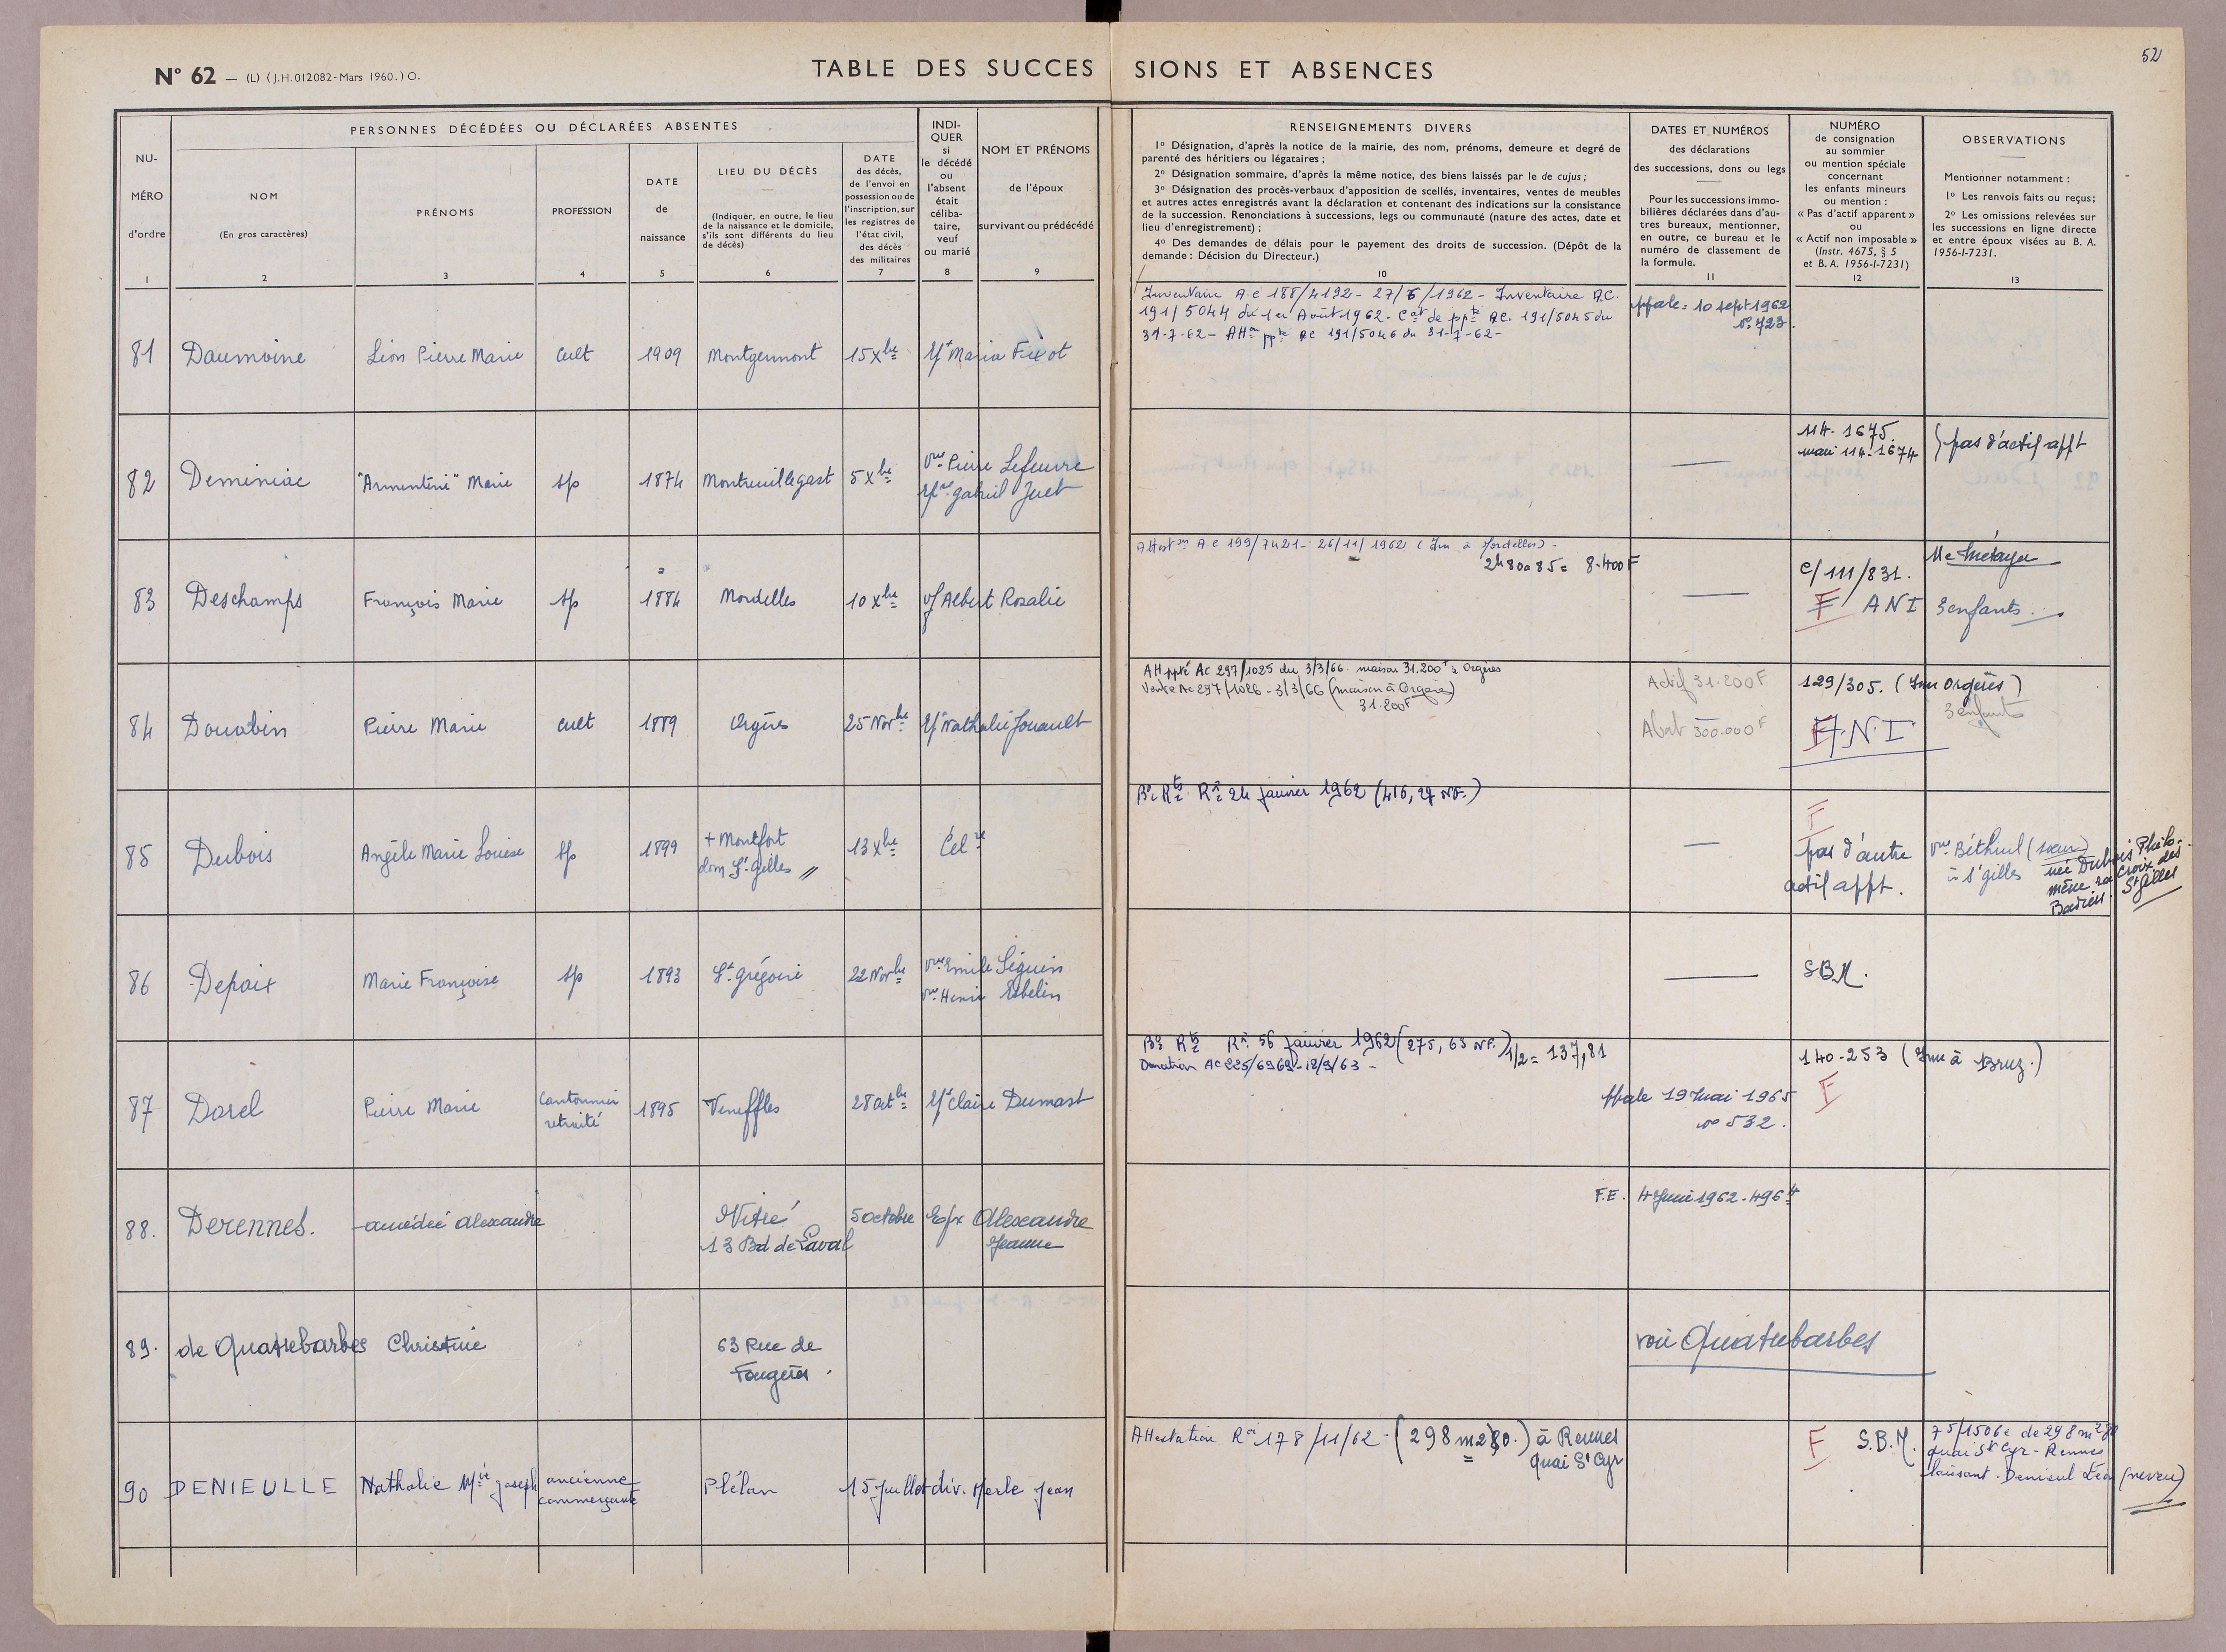 52
N° 62 — (L) (J.H. 012082 - Mars 1960.) O.
TABLE DES SUCCESSIONS ET ABSENCES
NU-
MÉRO
d'ordre
1
PERSONNES DÉCÉDÉES OU DÉCLARÉES ABSENTES
NOM
(En gros caractères)
2
PRÉNOMS
3
PROFESSION
4
DATE
de
naissance
5
LIEU DU DÉCÈS
(Indiquer, en outre, le lieu
de la naissance et le domicile,
s'ils sont différents du lieu
de décès)
6
DATE
des décès,
de l'envoi en
possession ou de
l'inscription, sur
les registres de
l'état civil,
des décès
des militaires
7
INDI-
QUER
si
le décédé
ou
l'absent
était
céliba-
taire,
veuf
ou marié
8
NOM ET PRÉNOMS
de l'époux
survivant ou prédécédé
9
RENSEIGNEMENTS DIVERS
1° Désignation, d'après la notice de la mairie, des nom, prénoms, demeure et degré de
parenté des héritiers ou légataires ;
2° Désignation sommaire, d'après la même notice, des biens laissés par le de cujus ;
3° Désignation des procès-verbaux d'apposition de scellés, inventaires, ventes de meubles
et autres actes enregistrés avant la déclaration et contenant des indications sur la consistance
de la succession. Renonciations à successions, legs ou communauté (nature des actes, date et
lieu d'enregistrement) ;
4° Des demandes de délais pour le payement des droits de succession. (Dépôt de la
demande : Décision du Directeur.)
10
DATES ET NUMÉROS
des déclarations
des successions, dons ou legs
Pour les successions immo-
bilières déclarées dans d'au-
tres bureaux, mentionner,
en outre, ce bureau et le
numéro de classement de
la formule.
11
NUMÉRO
de consignation
au sommier
ou mention spéciale
concernant
les enfants mineurs
ou mention :
« Pas d'actif apparent »
ou
« Actif non imposable »
(Instr. 4675, § 5
et B. A. 1956-I-7231)
12
OBSERVATIONS
Mentionner notamment :
1° Les renvois faits ou reçus ;
2° Les omissions relevées sur
les successions en ligne directe
et entre époux visées au B. A.
1956-I-7231.
13
81 Daumoine Léon Pierre Marie cult 1909 Montgermont 15 Xbre Maria Fixot
Inventaire A.C 188/4192 - 27/6/1962 - Inventaire A.C.
191/5044 du 1er Août 1962 - Cat de ppté AC. 191/5045 du
31-7-62 - AHon ppté AC 191/5046 du 31-7-62 -
ppale = 10 sept 1962
n° 723.
82 Deminiac "Armentine" Marie sp 1874 Montreuillegast 5 Xbre
vve Pierre Lefeuvre
Gabriel Juet
114. 1675.
mari 114-1674
pas d'actif appt
83 Deschamps François Marie sp 1884 Mordelles 10 Xbre vf Albert Rosalie
Attest on AC 199/7421 - 26/11/1962 (Im à Mordelles) -
2h 80a 85 = 8.400 F
c/111/831.
F ANI
Me Métayer
3 enfants.
84 Douabin Pierre Marie cult 1889 Orgères 25 Novbre Nathalie Jouault
AH ppté AC 297/1025 du 3/3/66 maison 31.200 F à Orgères
Vente AC 297/1026 - 3/3/66 (maison à Orgères)
31.200 F
Actif 31.200 F
Abat 300.000 F
129/305. (Imm Orgères)
3 enfants
A.N.I
85 Dubois Angèle Marie Louise sp 1899 + Montfort
dom St Gilles //
13 Xbre Cel re
24 janvier 1962 (416,27 NF.)
F
pas d'autre
actif appt.
vve Béthuel (soeur)
à St Gilles
née Dubois Philo-
mène La Croix des
St Gilles
86 Depoix Marie Françoise sp 1893 St Grégoire 22 Novbre
vve Emile Séguin
vve Henri
S.B.M.
87 Dorel Pierre Marie Cantonnier
retraité
1895 Veneffles 28 octbre Claire Dumast
56 janvier 1962 (275,63 NF.) 1/2 = 137,81
Donation AC 225/6969 - 18/9/63 -
ppale 19 Mai 1965
n° 532.
140-253 (Imm à Bruz.)
F
88. Derennes. amédée alexandre Vitré
13 Bd de Laval
5 octobre Epx Alexandre
Jeanne
F.E. 4 Juin 1962 - 496
89. de Quatrebarbes Christine 63 Rue de
Fougères.
voir Quatrebarbes
90 DENIEULLE Nathalie Mie Joseph ancienne
commerçante
Plélan 15 Juillet div. Merle Jean
Attestation Rn 178/11/62 - (298 m2 80.) à Rennes
quai St Cyr
F S.B.M.
75/1506e de 298 m2 80
quai St Cyr - Rennes
laissant. Denieul Léon (neveu)